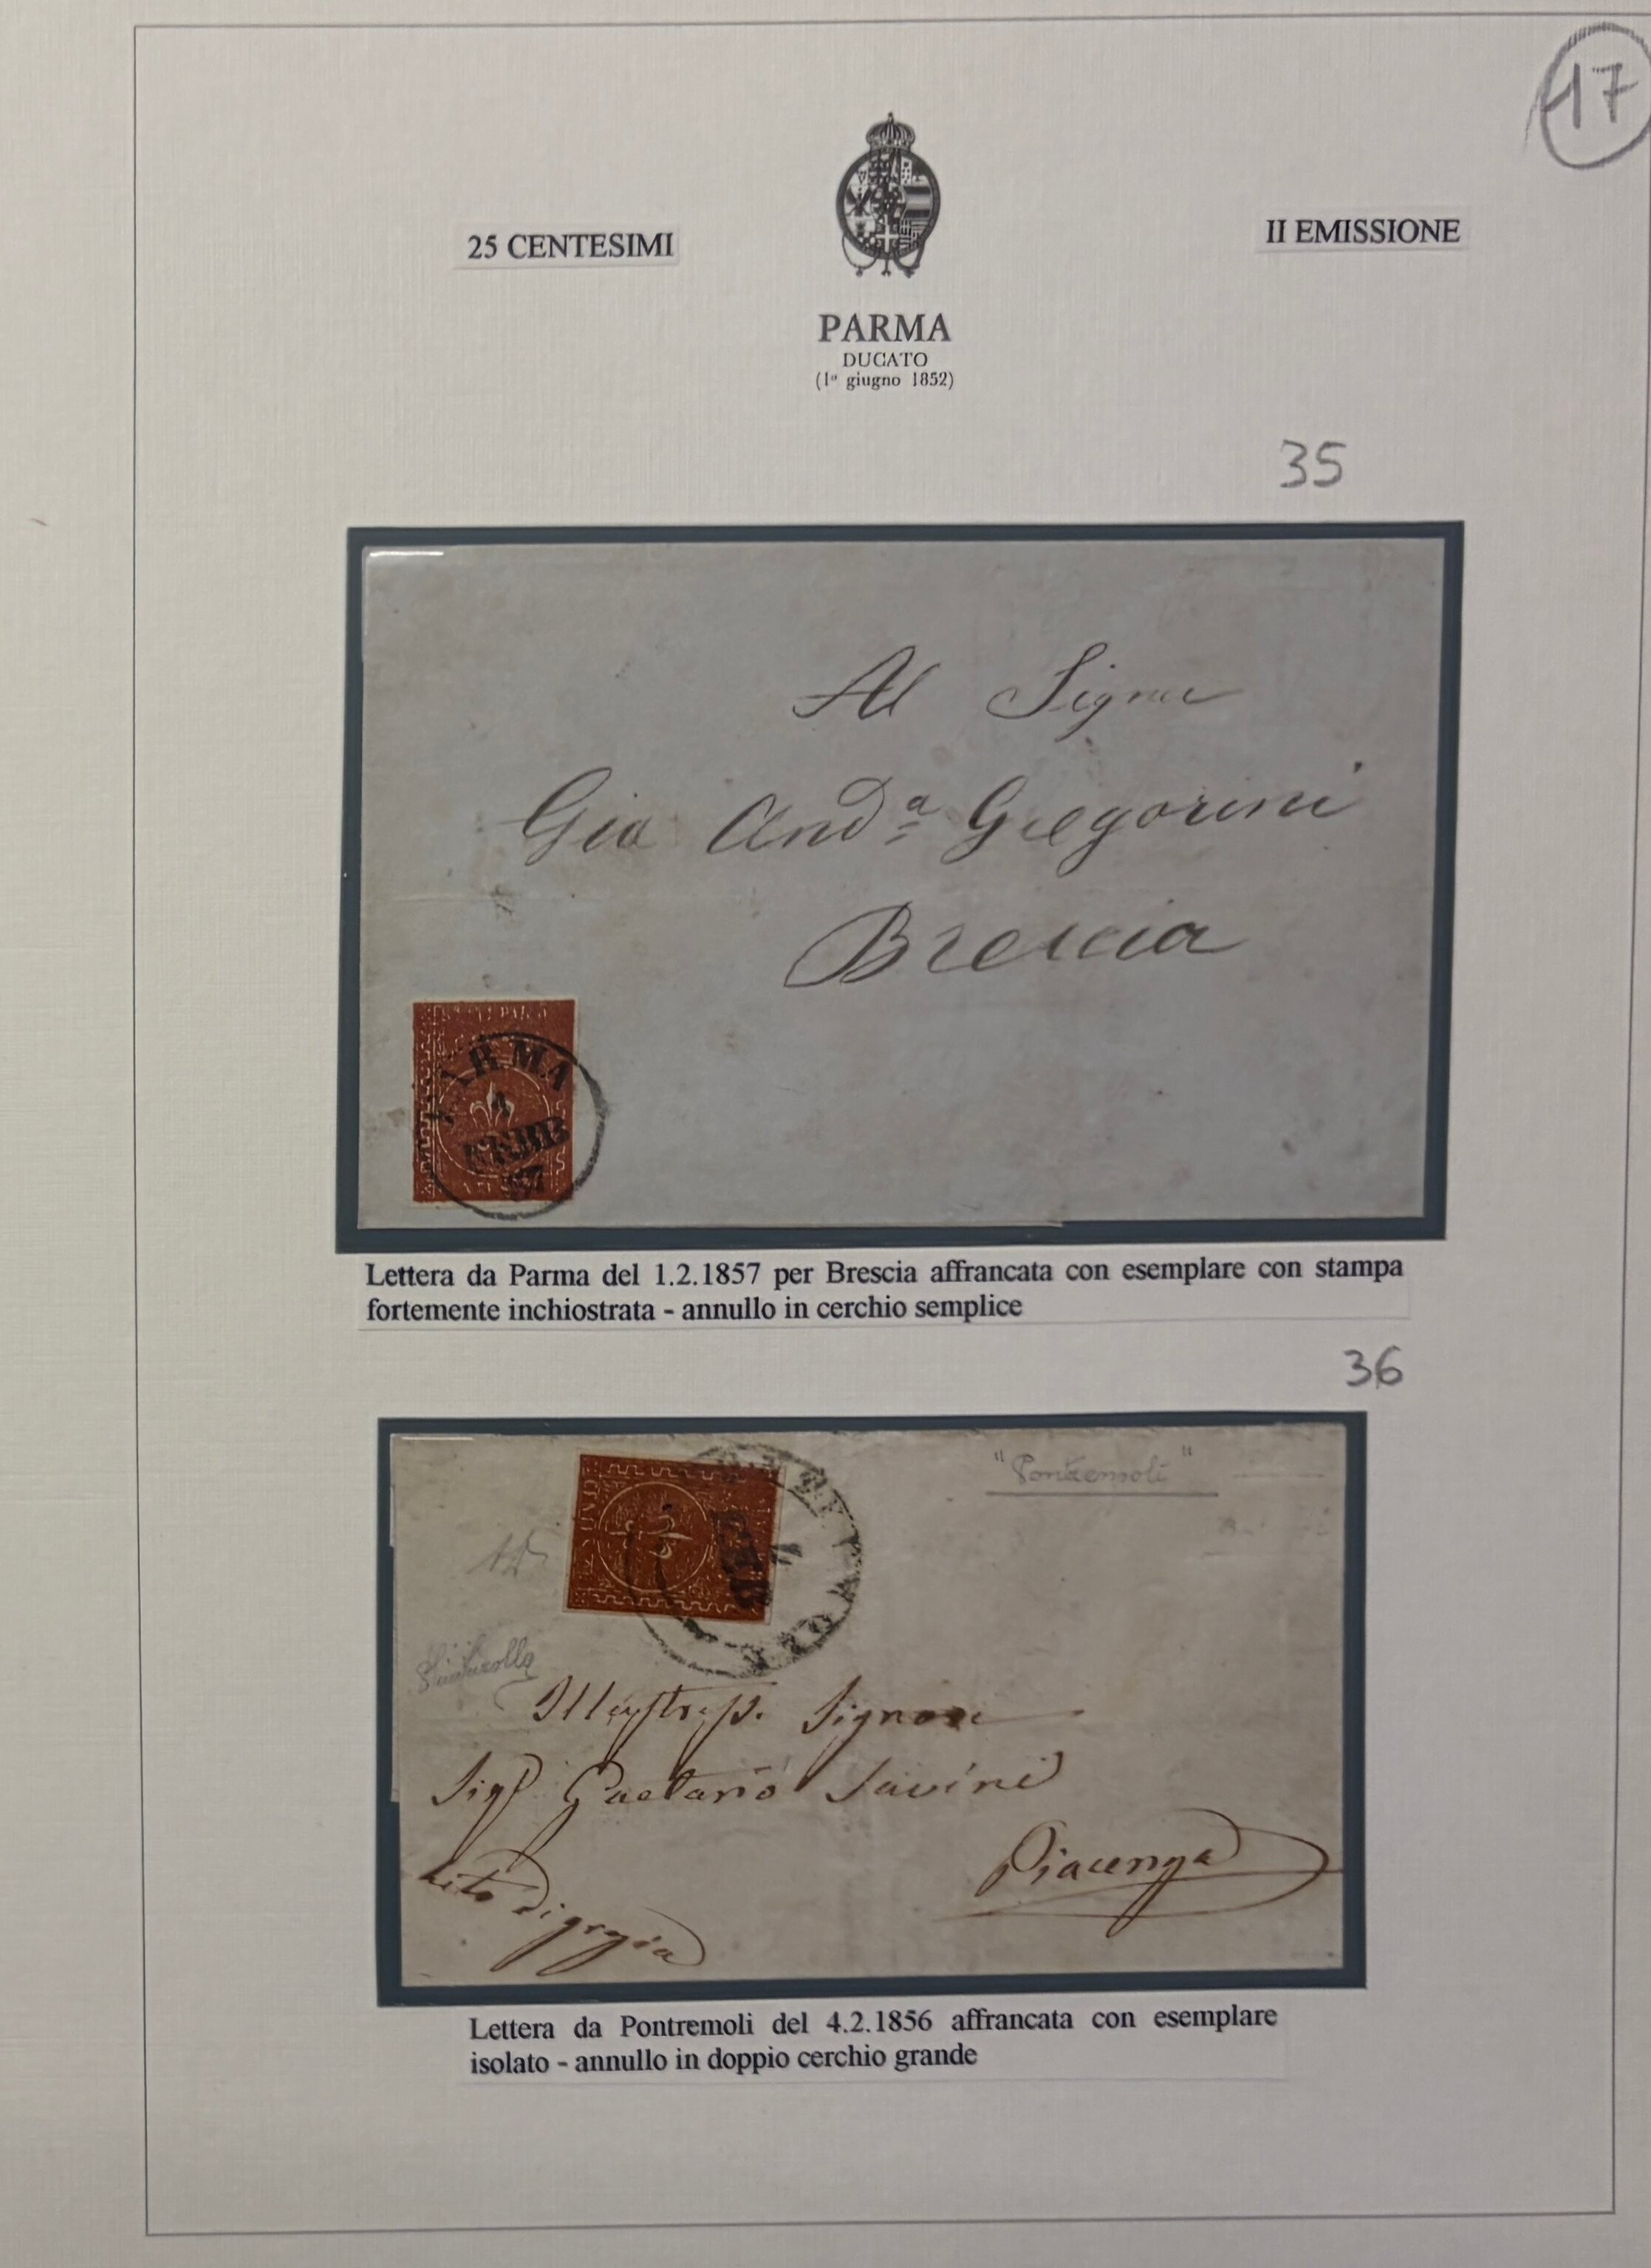 17
25 CENTESIMI
II EMISSIONE
PARMA
DUCATO
(1º giugno 1852)
35
Al Signor
Gio Andª Gregorini
Brescia
PARMA
1
FEBB
57
Lettera da Parma del 1.2.1857 per Brescia affrancata con esemplare con stampa
fortemente inchiostrata - annullo in cerchio semplice
36
"Pontremoli"
Signore
Sigr Gaetano Savini
Piacenza
Lettera da Pontremoli del 4.2.1856 affrancata con esemplare
isolato - annullo in doppio cerchio grande